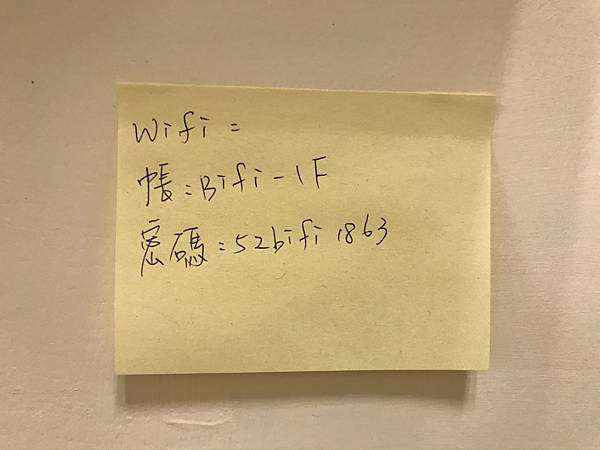 Wifi =
帳：Bifi-1F
密碼：52bifi1863